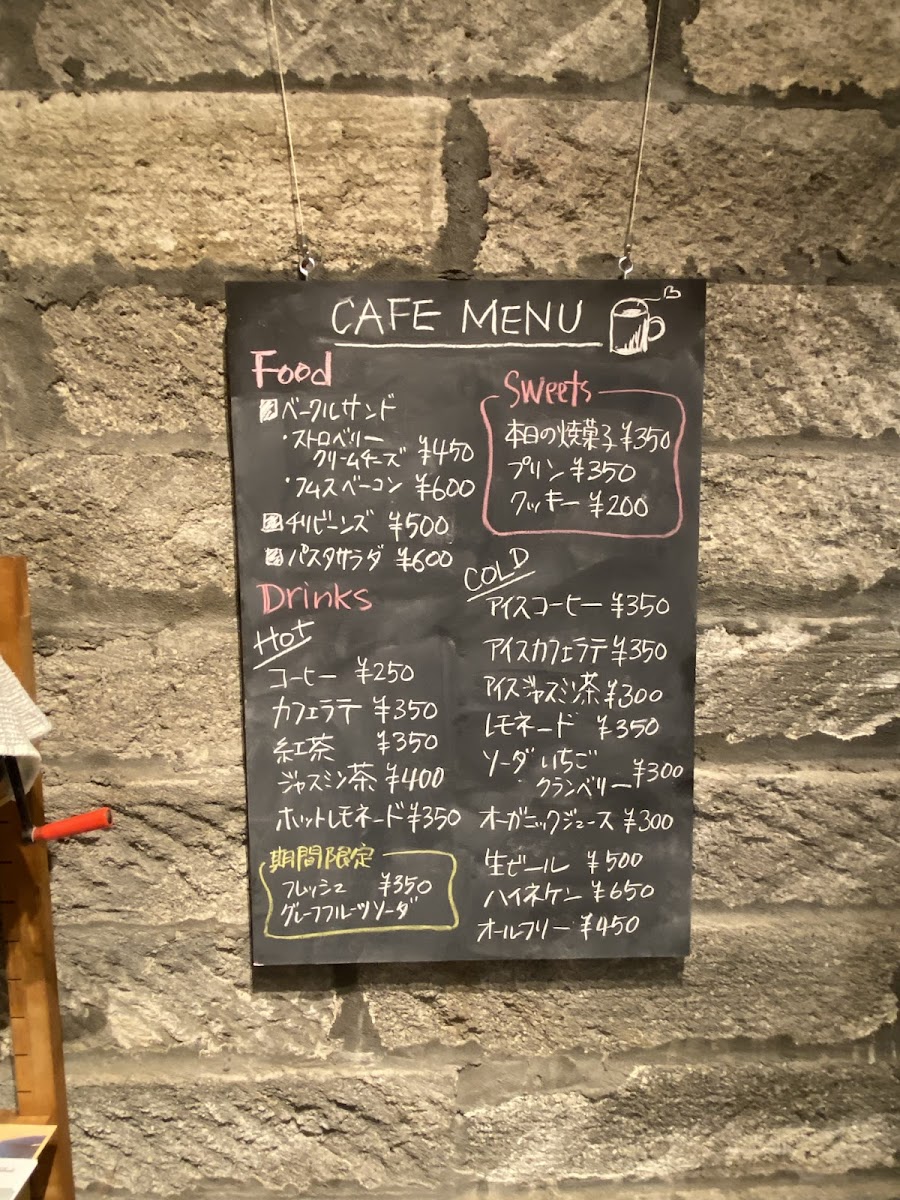 CAFE MENU
Food
ベーグルサンド
・ストロベリー
クリームチーズ ¥450
・フムスベーコン ¥600
チリビーンズ ¥500
パスタサラダ ¥600
Sweets
本日の焼菓子 ¥350
プリン ¥350
クッキー ¥200
Drinks
Hot
コーヒー ¥250
カフェラテ ¥350
紅茶 ¥350
ジャスミン茶 ¥400
ホットレモネード ¥350
期間限定
フレッシュ ¥350
グレープフルーツソーダ
COLD
アイスコーヒー ¥350
アイスカフェラテ ¥350
アイスジャスミン茶 ¥300
レモネード ¥350
ソーダ いちご
クランベリー ¥300
オーガニックジュース ¥300
生ビール ¥500
ハイネケン ¥650
オールフリー ¥450